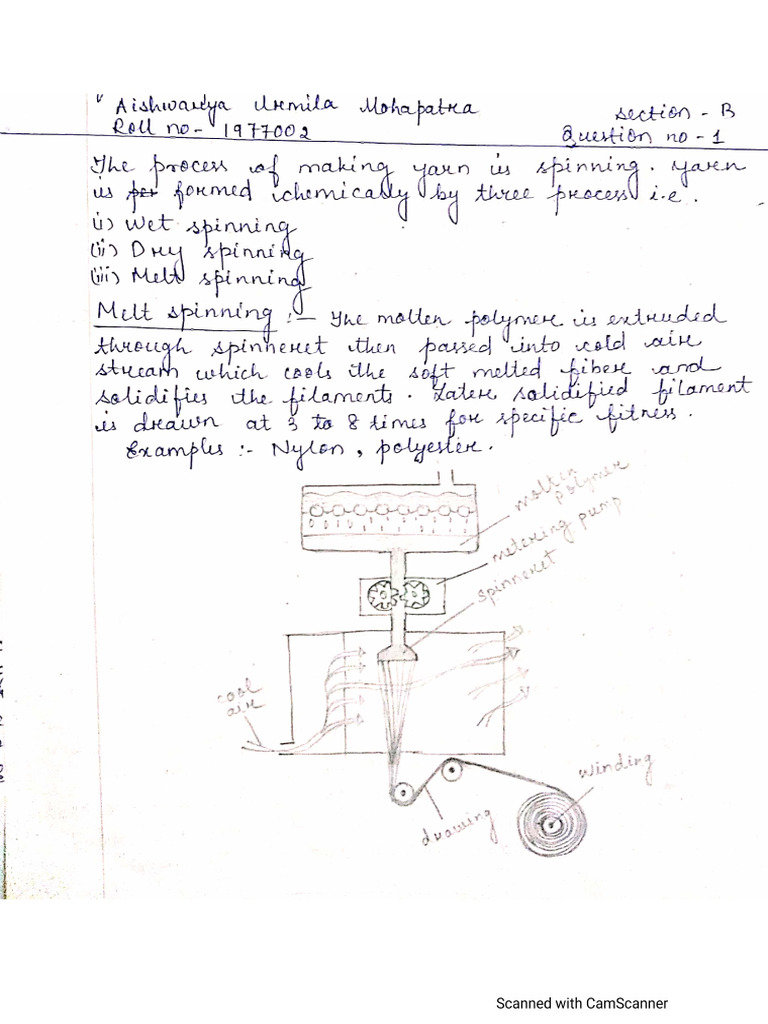 Aishwarya Urmila Mohapatra
Section - B
Roll no- 1977002
Question no - 1
The process of making yarn is spinning. Yarn
is formed chemically by three process i.e.
(i) Wet spinning
(ii) Dry spinning
(iii) Melt spinning
Melt spinning :— The molten polymer is extruded
through spinneret then passed into cold air
stream which cools the soft melted fiber and
solidifies the filaments. Later solidified filament
is drawn at 3 to 8 times for specific fitness.
Examples :- Nylon, polyester.
molten
polymer
metering pump
spinneret
cool
air
winding
drawing
Scanned with CamScanner